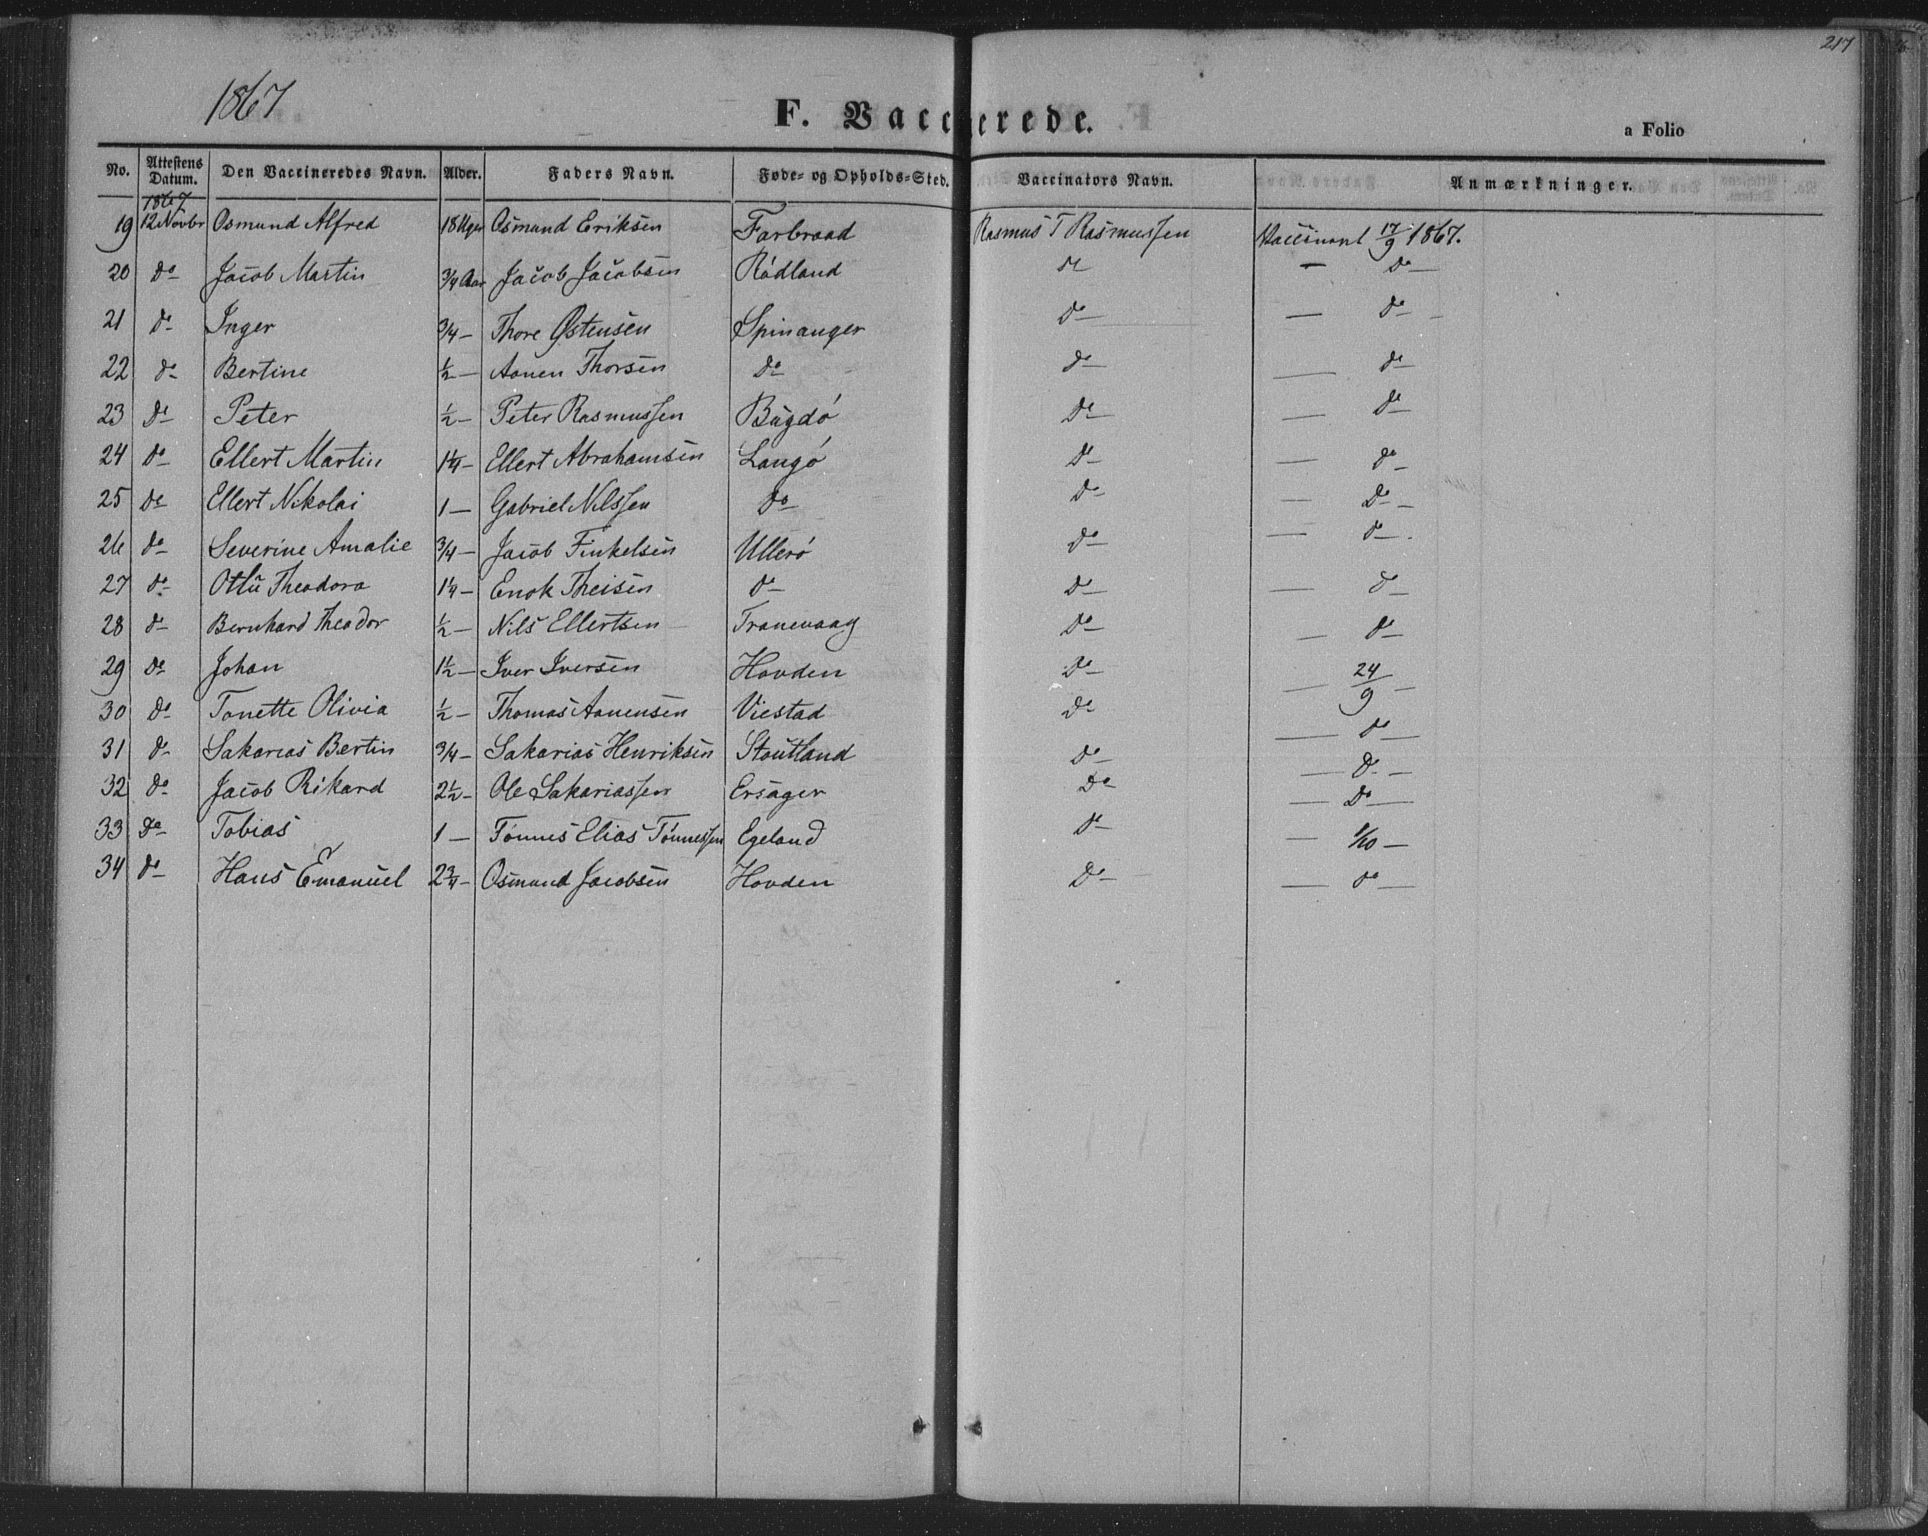 217
1867
F. Vaccinerede.
a Folio
No. Attestens Datum. Den Vaccineredes Navn. Alder. Faders Navn. Føde- og Opholds-Sted. Vaccinators Navn. Anmærkninger.
1867
19 12 Novbr Osmund Alfred 18 Uger Osmund Eriksen Farbraad Rasmus T Rasmussen Vaccineret 17/9 1867.
20 do Jacob Martin 3/4 Aar Jacob Jacobsen Rødland do — do —
21 do Inger 3/4 — Thore Østensen Spinanger do — do —
22 do Bertine 1/2 — Aanen Thorsen do do — do
23 do Peter 1/2 — Peter Rasmussen Bugdø do — do
24 do Ellert Martin 1 1/4 — Ellert Abrahamsen Langø do — do
25 do Ellert Nikolai 1 — Gabriel Nilssen do do — do —
26 do Severine Amalie 3/4 — Jacob Finkelsen Ullerø do — do
27 do Theodora 1 1/4 — Enok Theisen do do — do
28 do Bernhard Theodor 1/2 — Nils Ellertsen Tranevaag do — do
29 do Johan 1 1/2 — Iver Iversen Hovden do — 24/9 —
30 do Tonette Olivia 1/2 — Thomas Aanensen Viestad do — do —
31 do Sakarias Bertin 3/4 — Sakarias Henriksen Stoutland do — do —
32 do Jacob Rikard 2 1/2 — Ole Sakariassen Ersager do — do —
33 do Tobias 1 — Tønnes Elias Tønnessen Egeland do — 1/10 —
34 do Hans Emanuel 2 3/4 — Osmund Jacobsen Hovden do — do —